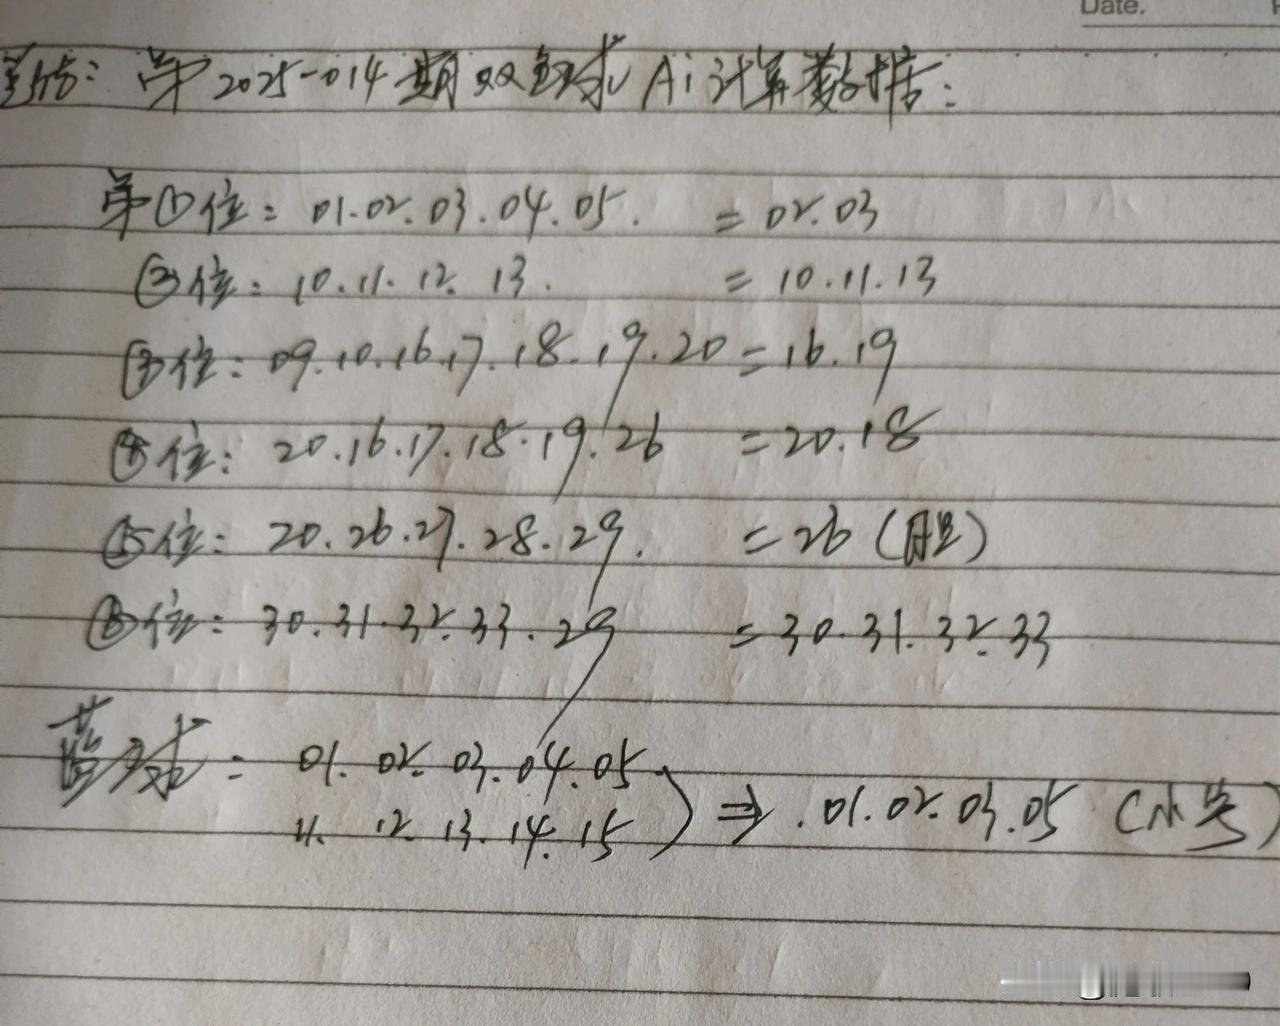 Date.
第2025-014期双色球Ai计算数据:
第①位: 01.02.03.04.05. = 02.03
②位: 10.11.12.13. = 10.11.13
③位: 09.10.16.17.18.19.20 = 16.19
④位: 20.16.17.18.19.26 = 20.18
⑤位: 20.26.27.28.29. = 26(胆)
⑥位: 30.31.32.33.29 = 30.31.32.33
蓝球: 01.02.03.04.05
11. 12.13.14.15 ) ⇒ .01.02.03.05 (小号)